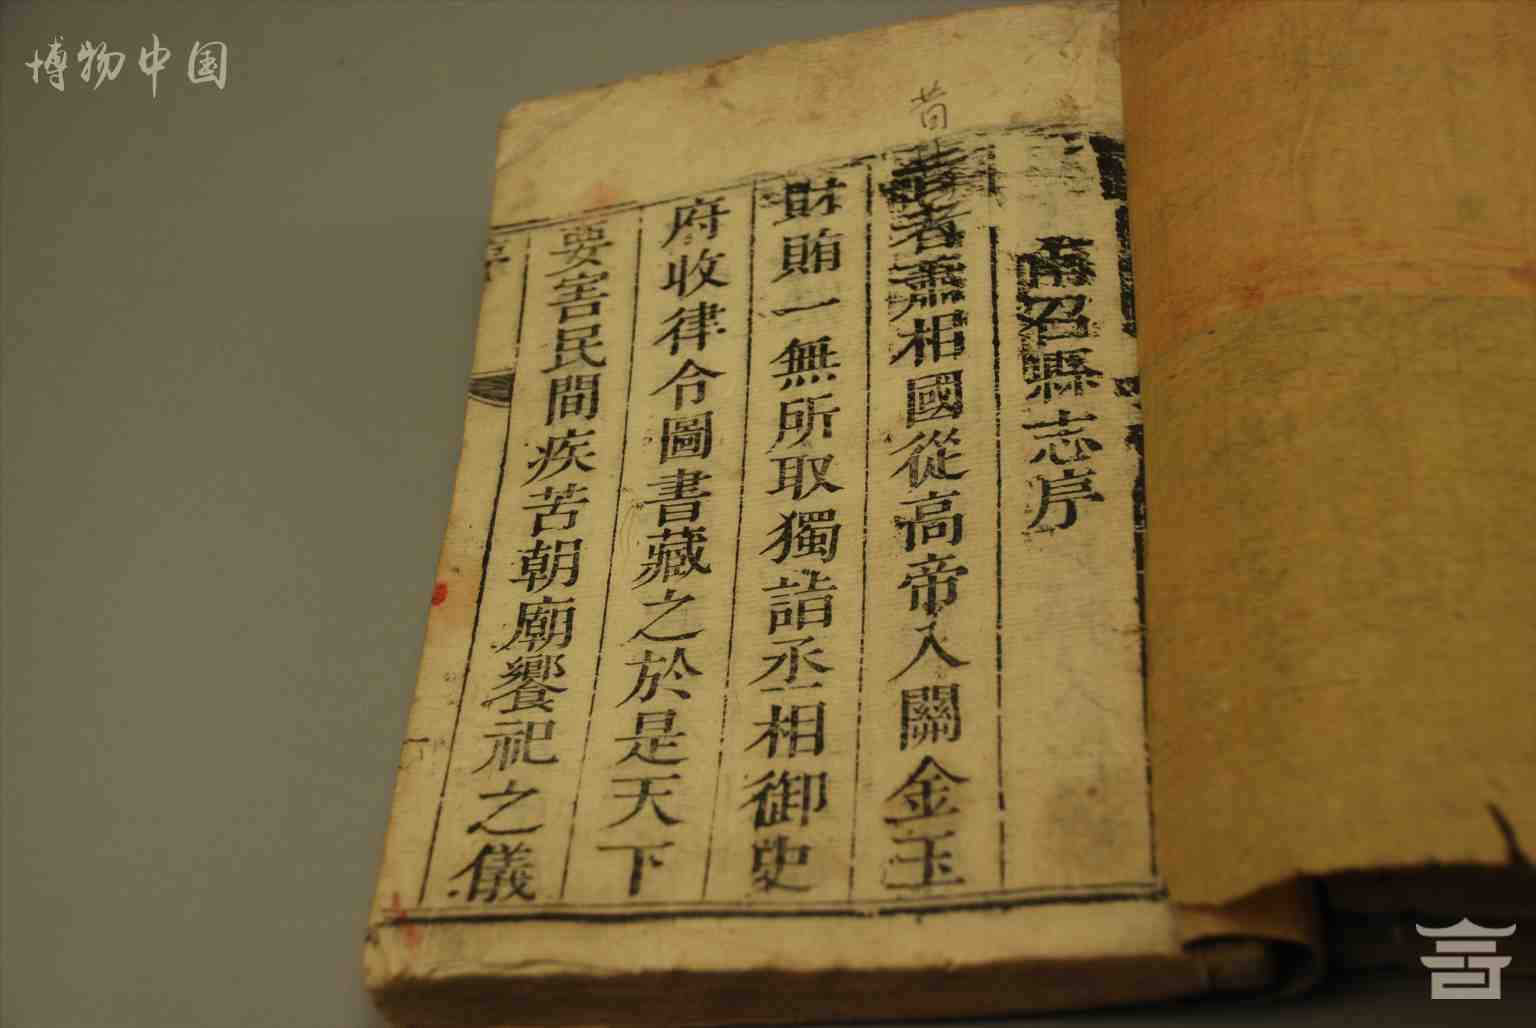 博物中国
昔
南召縣志序
昔者蕭相國從高帝入關金玉
財賄一無所取獨詣丞相御史
府收律令圖書藏之於是天下
要害民間疾苦朝廟饗祀之儀
序